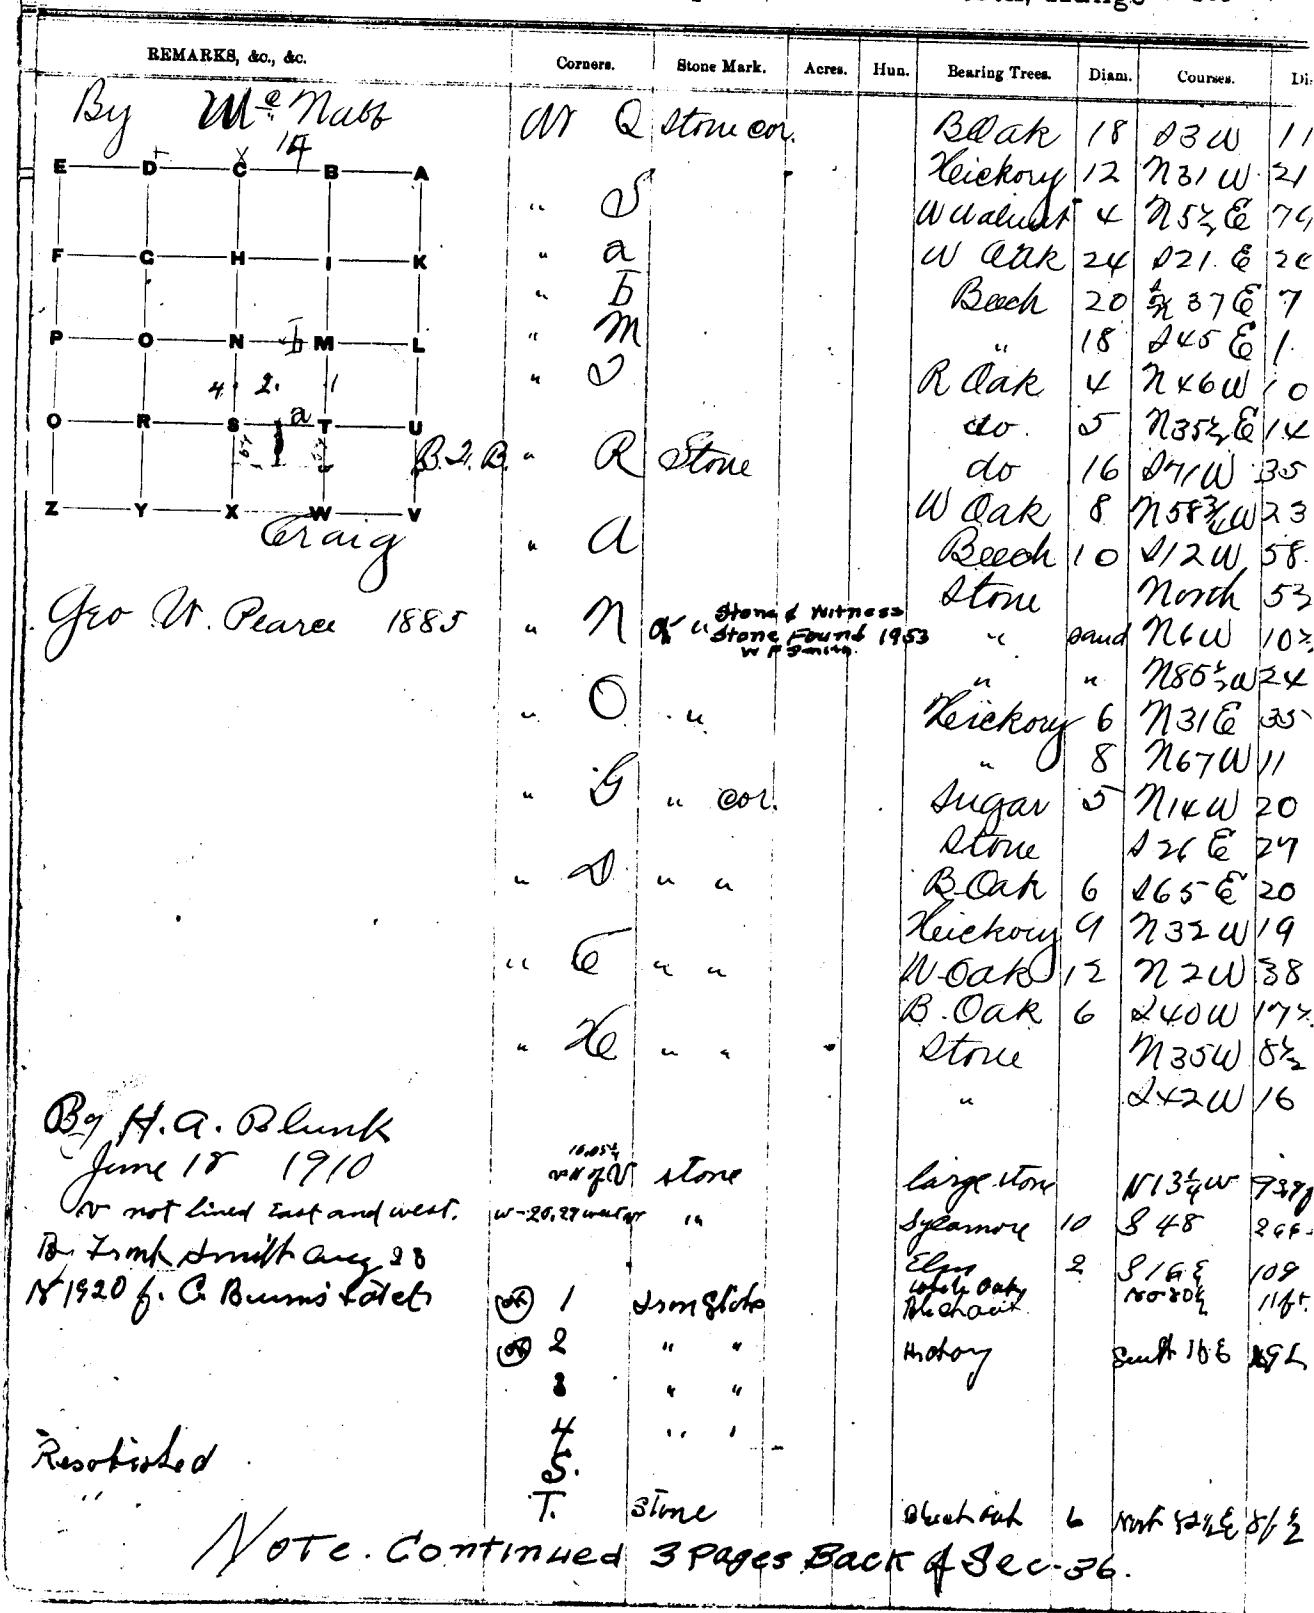 REMARKS, &c., &c. Corners. Stone Mark. Acres. Hun. Bearing Trees. Diam. Courses. Di
By McNabb
At Q Stone cor. B Oak 18 S 3 W 11
14
E D C B A
Hickory 12 N 31 W 21
" S W Walnut 4 N 5½ E
F G H I K
" a W Oak 24 S 21 E
" b Beech 20 S 37 E 7
P O N b M L
" M " 18 S 45 E 1
4 2. 1
" R Oak 4 N 46 W 10
O R S a T U
do 5 N 35½ E 14
B.2.B. " R Stone do 16 S 71 W 35
Z Y X W V
W Oak 8 N 58¾ W 23
Craig
" A Beech 10 S 12 W 58
Stone North 53
Geo W. Pearce 1885
" N Stone & Witness
Stone Found 1953
W F Smith
" sand N 6 W 10½
" " N 85½ W 24
" O " Hickory 6 N 31 E 35
" 8 N 67 W 11
" G " cor. Sugar 5 N 14 W 20
Stone S 26 E 27
" D " " B. Oak 6 S 65 E 20
Hickory 9 N 32 W 19
" E " " W. Oak 12 N 2 W 38
B. Oak 6 S 40 W 17½
" H " " Stone N 35 W 8½
" S 42 W 16
By H. A. Blunk
June 18 1910
N of V stone large stone N 13¼ W
V not lined East and west.
W - 20.27 " Sycamore 10 S 48
By Frank Smith Aug 28
Elm 2 S 16 E 109
N 1920 f. C. Burns
ok 1 Iron White Oak 11 ft.
ok 2 " " Hickory South 16 E
3 " "
4 " "
S.
" T. stone 6
Note. Continued 3 Pages Back of Sec-36.